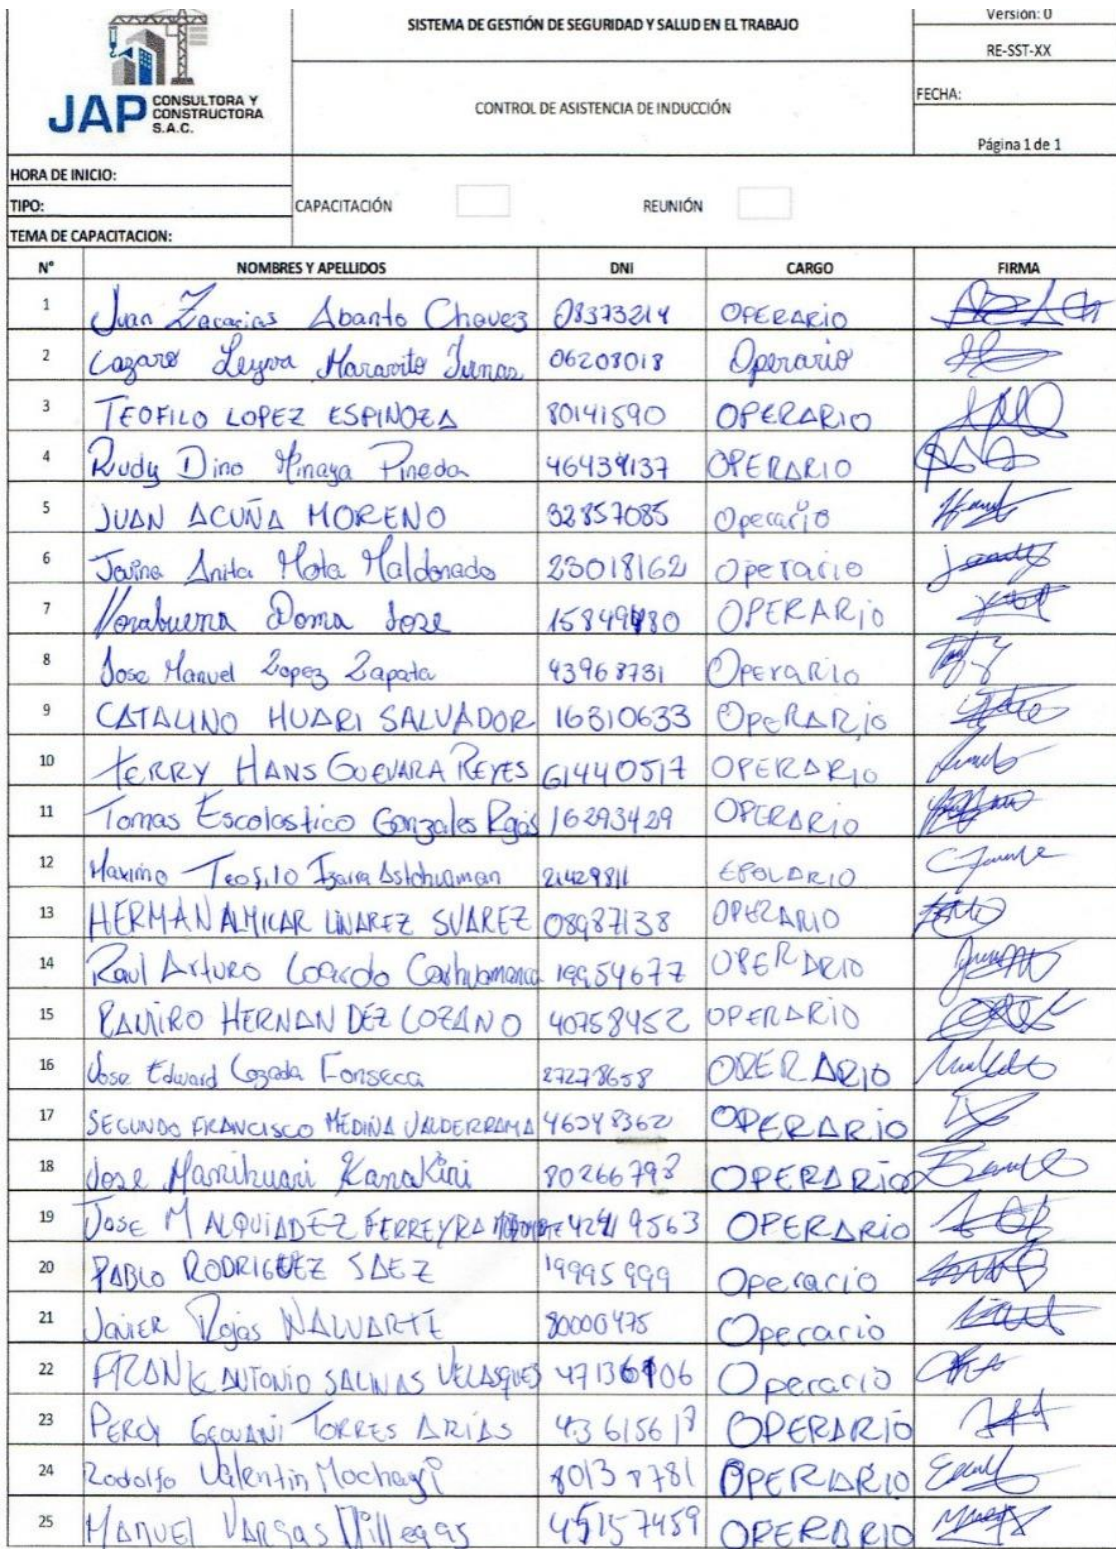 Versión: 0
SISTEMA DE GESTIÓN DE SEGURIDAD Y SALUD EN EL TRABAJO
RE-SST-XX
JAP CONSULTORA Y
CONSTRUCTORA
S.A.C.
CONTROL DE ASISTENCIA DE INDUCCIÓN
FECHA:
Página 1 de 1
HORA DE INICIO:
TIPO: CAPACITACIÓN REUNIÓN
TEMA DE CAPACITACION:
N° NOMBRES Y APELLIDOS DNI CARGO FIRMA
1 Juan Zacarias Abanto Chavez 08373214 OPERARIO
2 Lazaro Leyva Maravito 06208018 Operario
3 TEOFILO LOPEZ ESPINOZA 80141590 OPERARIO
4 Rudy Dino Minaya Pineda 46439137 OPERARIO
5 JUAN ACUÑA MORENO 32857085 Operario
6 Anita Mota Maldonado 23018162 Operario
7 Norabuena Doma Jose OPERARIO
8 Jose Manuel Lopez Zapata 43968731 Operario
9 CATALINO HUARI SALVADOR 16310633 OpeRARio
10 TERRY HANS GUEVARA REYES 61440517 OPERARIO
11 Tomas Escolastico Gonzales Rojas 16293429 OPERARIO
12 Maximo Teofilo Izarra Astohuaman 21429811
13 HERMAN ALMICAR LINAREZ SUAREZ 08987138 OPERARIO
14 Raul Arturo 19954677 OPERARIO
15 RAMIRO HERNANDEZ LOZANO 40758452 OPERARIO
16 Jose Edward Lozada Fonseca 27278658 OPERARIO
17 SEGUNDO FRANCISCO MEDINA VALDERRAMA 46048362 OPERARIO
18 Jose Manihuari Kanakiri 80266798 OPERARIO
19 JOSE MALQUIADEZ FERREYRA OPERARIO
20 PABLO RODRIGUEZ SAEZ 19995999 Operario
21 JAVIER Rojas NALVARTE 80000475 Operario
22 FRANK ANTONIO SALINAS VELASQUES Operario
23 PERCY GEOVANI TORRES ARIAS 43615618 OPERARIO
24 Rodolfo Valentin Mochagi 80138781 OPERARIO
25 MANUEL VARGAS Villegas 45157459 OPERARIO